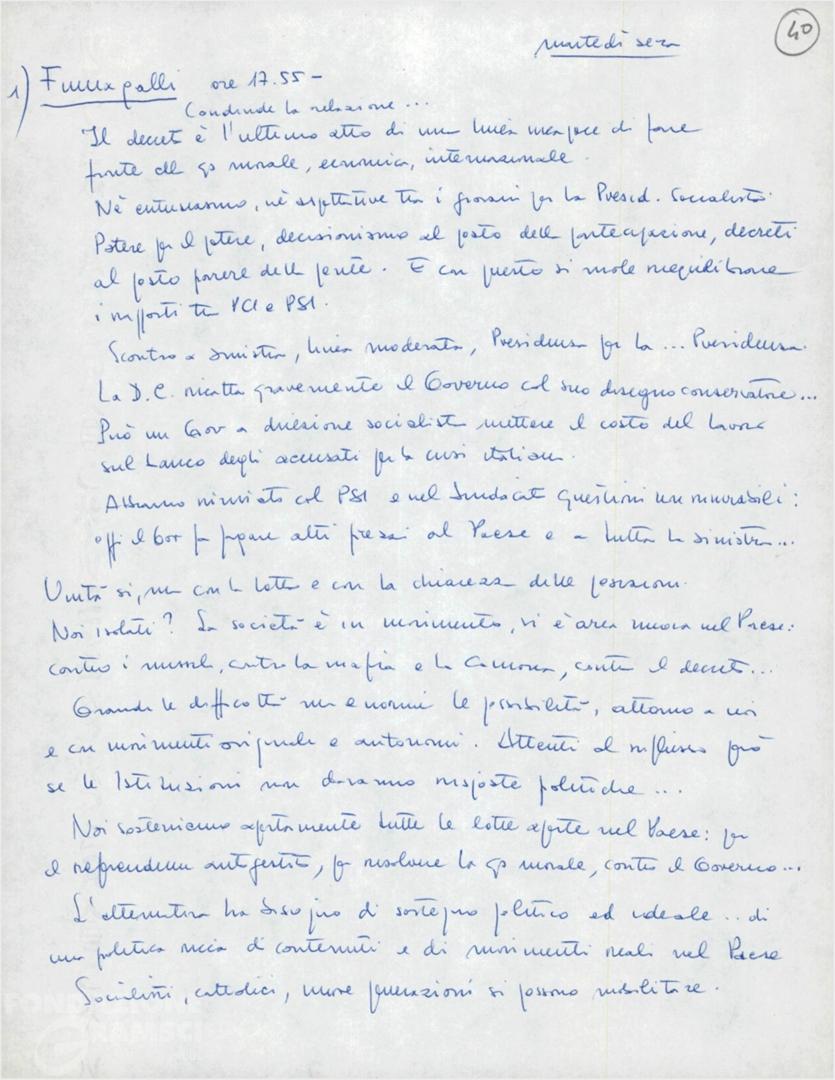 40
martedì sera
1) Fumagalli ore 17.55 -
Conclude la relazione...
Il decreto è l'ultimo atto di una linea incapace di fare
fronte alla qs morale, economica, internazionale.
Nè entusiasmo, nè aspettative tra i giovani per la Presid. Socialista.
Potere per il potere, decisionismo al posto della partecipazione, decreti
al posto parere della gente. E con questo si vuole riequilibrare
i rapporti tra PCI e PSI.
Scontro a sinistra, linea moderata, Presidenza per la ... Presidenza.
La D.C. ricatta gravemente il Governo col suo disegno conservatore...
Può un Gov a direzione socialista mettere il costo del lavoro
sul banco degli accusati per la crisi italiana.
Abbiamo rinviato col PSI e nel Sindacato questioni non rinviabili:
oggi il Gov fa pagare alti prezzi al Paese e a tutta la sinistra...
Unità si, ma con la lotta e con la chiarezza delle posizioni.
Noi isolati? La società è in movimento, vi è area nuova nel Paese:
contro i missili, contro la mafia e la Camorra, contro il decreto...
Grandi le difficoltà ma enormi le possibilità, attorno a noi
e con movimenti originali e autonomi. Attenti al riflusso però
se le Istituzioni non daranno risposte politiche...
Noi sosteniamo apertamente tutte le lotte aperte nel Paese: per
il referendum autogestito, per risolvere la qs morale, contro il Governo...
L'alternativa ha bisogno di sostegno politico ed ideale.. di
una politica ricca di contenuti e di movimenti reali nel Paese
Socialisti, cattolici, nuove generazioni si possono mobilitare.
FONDAZIONE
GRAMSCI